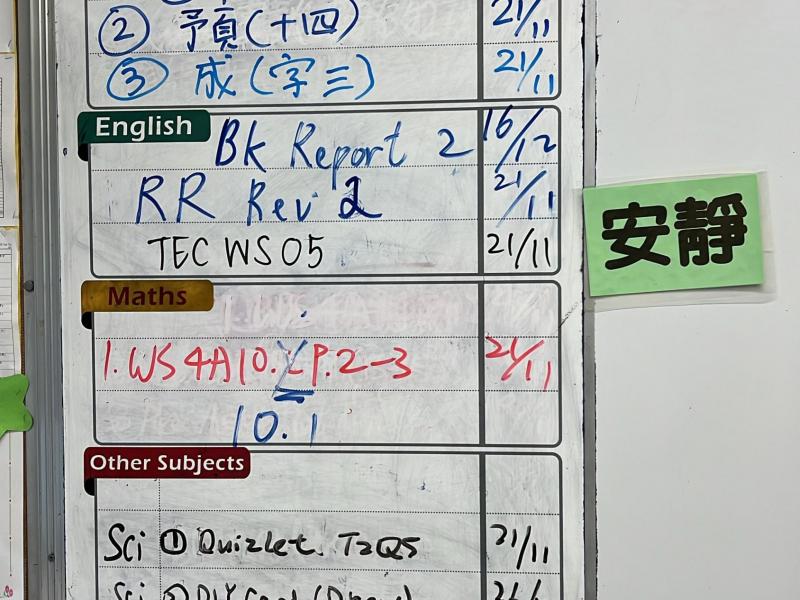 ② 預(十四) 21/11
③ 成(字三) 21/11
English
Bk Report 2 16/12
RR Rev 2 21/11
TEC WS 05 21/11
安靜
Maths
1. WS 4A10. P.2-3 21/11
10.1
Other Subjects
Sci ① Quizlet T2Q5 21/11
Sci ②